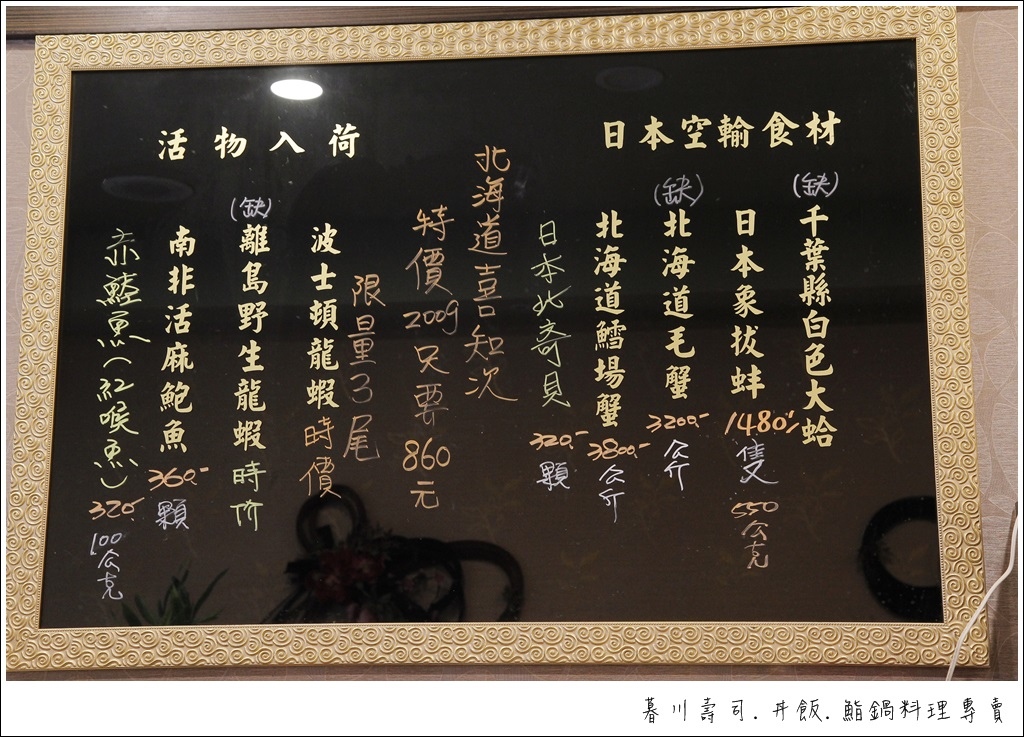 日本空輸食材
(缺)千葉縣白色大蛤
日本象拔蚌1480/隻550公克
(缺)北海道毛蟹3200.-公斤
北海道鱈場蟹3800.-公斤
日本北寄貝320.-顆
北海道喜知次
特價200g只要860元
限量3尾
活物入荷
波士頓龍蝦時價
(缺)離島野生龍蝦時价
南非活麻鮑魚360.-顆
赤鯥魚(紅喉魚)320.-100公克
暮川壽司.丼飯.鮨鍋料理專賣